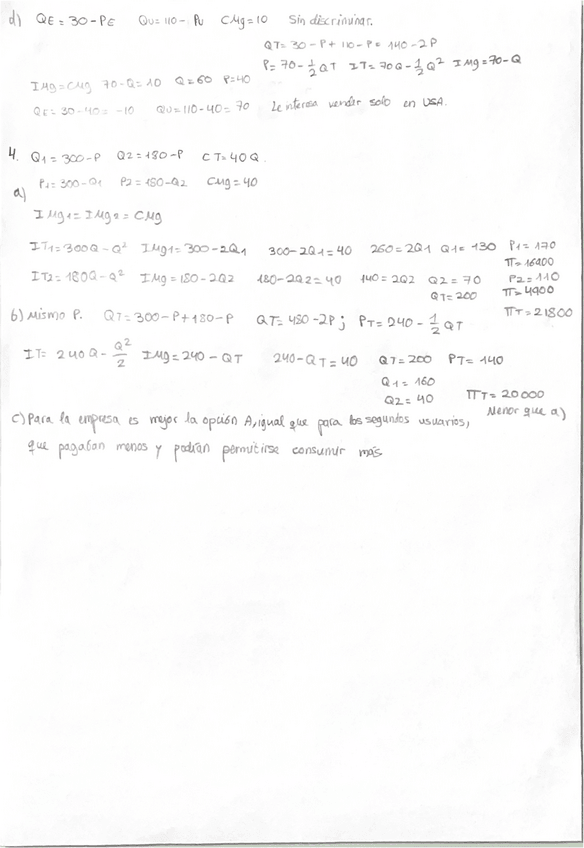 d) QE = 30 - PE QU = 110 - PU CMg = 10 Sin discriminar.
QT = 30 - P + 110 - P = 140 - 2P
P = 70 - 1/2 QT IT = 70Q - 1/2 Q² IMg = 70 - Q
IMg = CMg 70 - Q = 10 Q = 60 P = 40
QE = 30 - 40 = -10 QU = 110 - 40 = 70 Le interesa vender solo en USA.
4. Q1 = 300 - P Q2 = 180 - P CT = 40Q.
a) P1 = 300 - Q1 P2 = 180 - Q2 CMg = 40
IMg1 = IMg2 = CMg
IT1 = 300Q - Q² IMg1 = 300 - 2Q1 300 - 2Q1 = 40 260 = 2Q1 Q1 = 130 P1 = 170
π = 16900
IT2 = 180Q - Q² IMg = 180 - 2Q2 180 - 2Q2 = 40 140 = 2Q2 Q2 = 70 P2 = 110
QT = 200 π = 4900
πT = 21800
b) Mismo P. QT = 300 - P + 180 - P QT = 480 - 2P ; PT = 240 - 1/2 QT
IT = 240Q - Q²/2 IMg = 240 - QT 240 - QT = 40 QT = 200 PT = 140
Q1 = 160
Q2 = 40 πT = 20000
Menor que a)
c) Para la empresa es mejor la opción A, igual que para los segundos usuarios,
que pagaban menos y podían permitirse consumir más